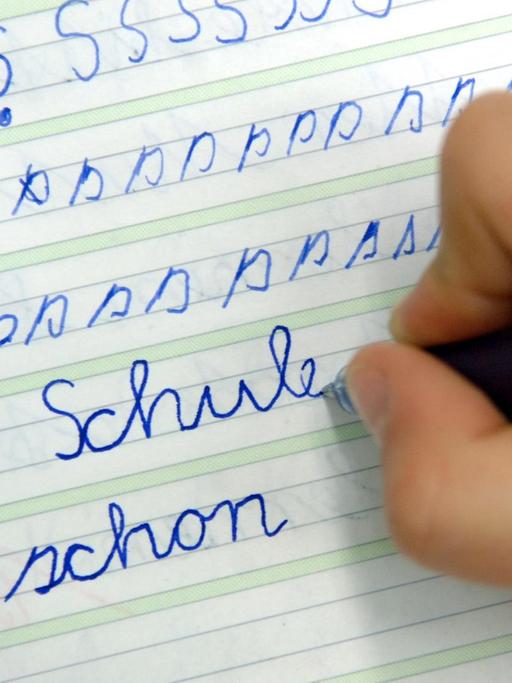 S S S S S S S
s s s s s s s s s
s s s s s s s s
Schule
schon